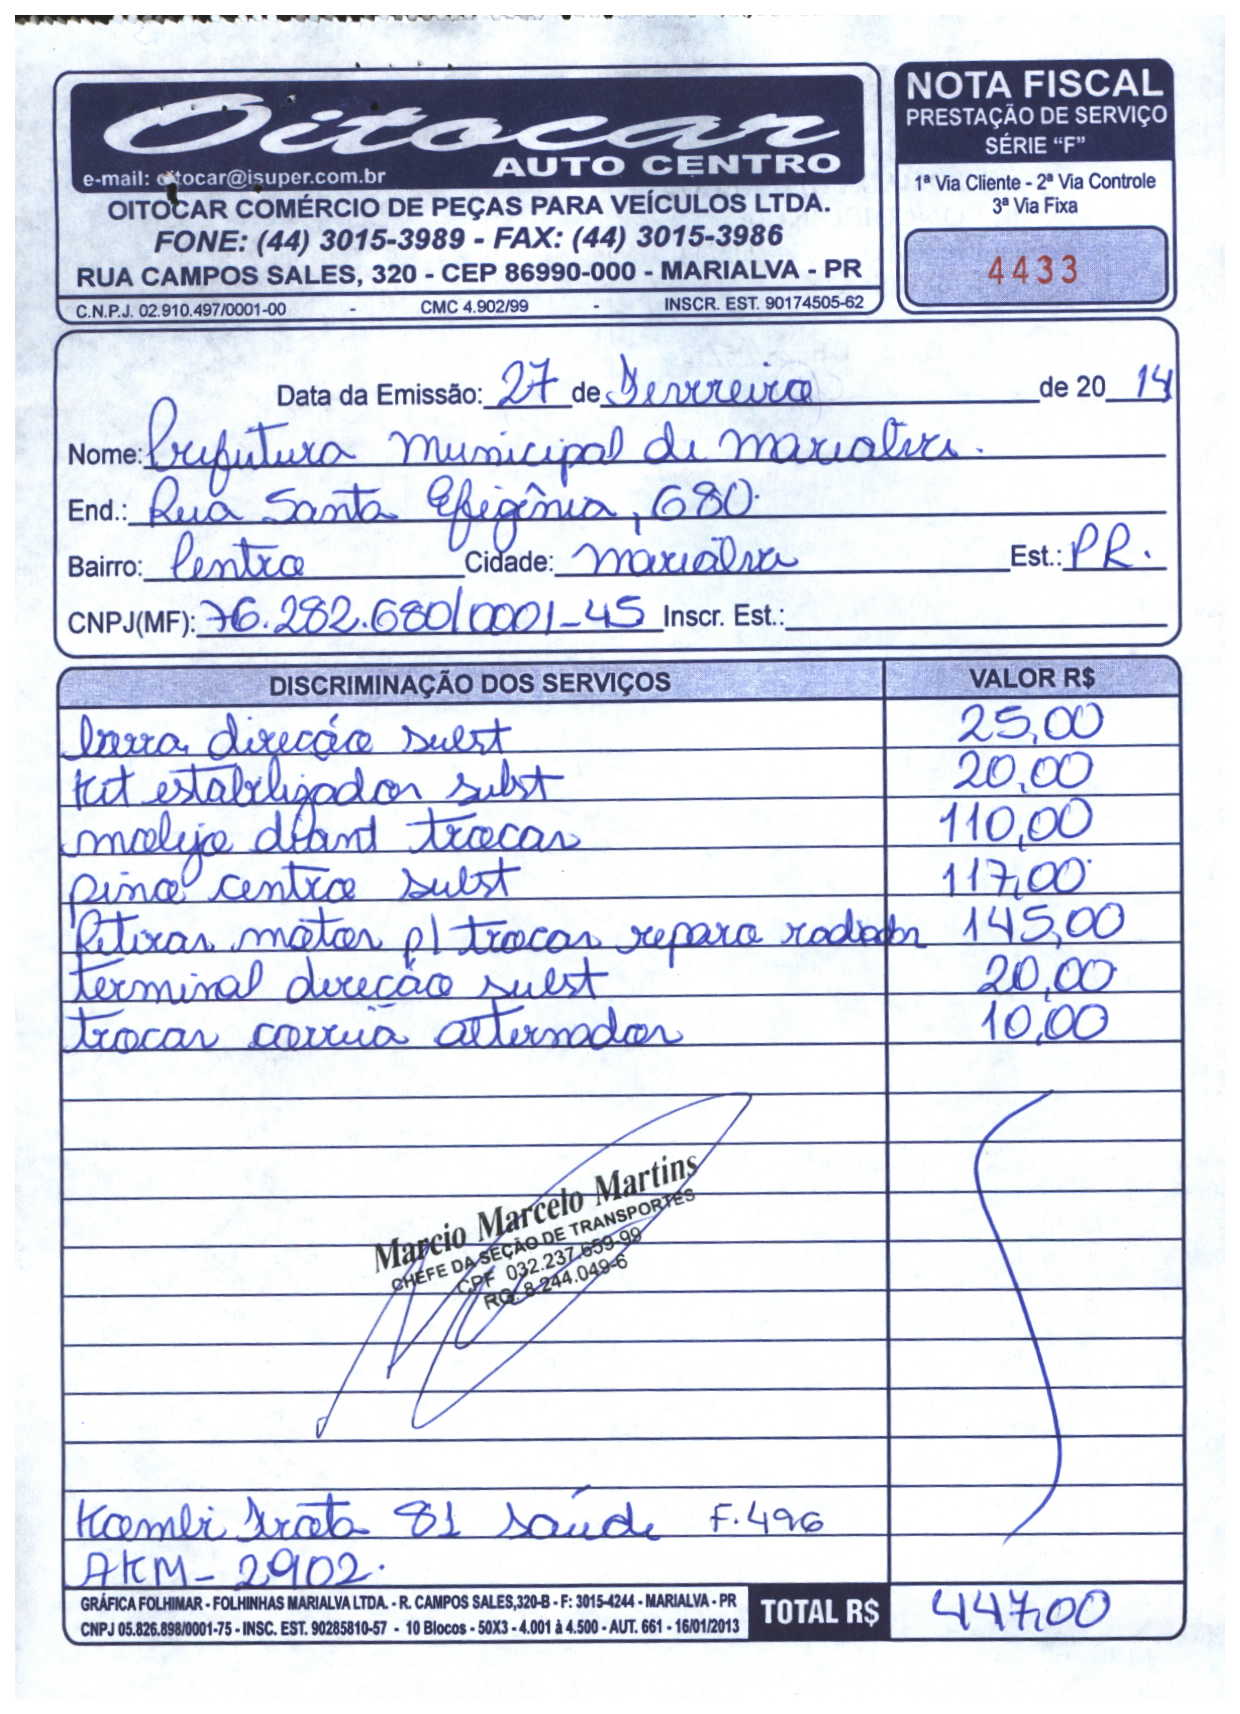 Oitocar
AUTO CENTRO
e-mail: oitocar@isuper.com.br
OITOCAR COMÉRCIO DE PEÇAS PARA VEÍCULOS LTDA.
FONE: (44) 3015-3989 - FAX: (44) 3015-3986
RUA CAMPOS SALES, 320 - CEP 86990-000 - MARIALVA - PR
C.N.P.J. 02.910.497/0001-00 - CMC 4.902/99 - INSCR. EST. 90174505-62
NOTA FISCAL
PRESTAÇÃO DE SERVIÇO
SÉRIE “F”
1ª Via Cliente - 2ª Via Controle
3ª Via Fixa
4433
Data da Emissão: 27 de Fevereiro de 20 14
Nome: Prefeitura Municipal de Marialva.
End.: Rua Santa Efigênia, 680
Bairro: Centro Cidade: Marialva Est.: PR.
CNPJ(MF): 76.282.680/0001-45 Inscr. Est.:
DISCRIMINAÇÃO DOS SERVIÇOS VALOR R$
barra direção subst 25,00
Kit estabilizador subst 20,00
molejo diant trocar 110,00
pino centro subst 117,00
Retirar motor p/ trocar reparo radiador 145,00
terminal direção subst 20,00
trocar correia alternador 10,00
Marcio Marcelo Martins
CHEFE DA SEÇÃO DE TRANSPORTES
CPF 032.237.659-99
RG. 8.244.049-6
Kombi frota 81 saúde F.496
AKM-2902.
GRÁFICA FOLHIMAR - FOLHINHAS MARIALVA LTDA. - R. CAMPOS SALES,320-B - F: 3015-4244 - MARIALVA - PR
CNPJ 05.826.898/0001-75 - INSC. EST. 90285810-57 - 10 Blocos - 50X3 - 4.001 à 4.500 - AUT. 661 - 16/01/2013
TOTAL R$ 447,00